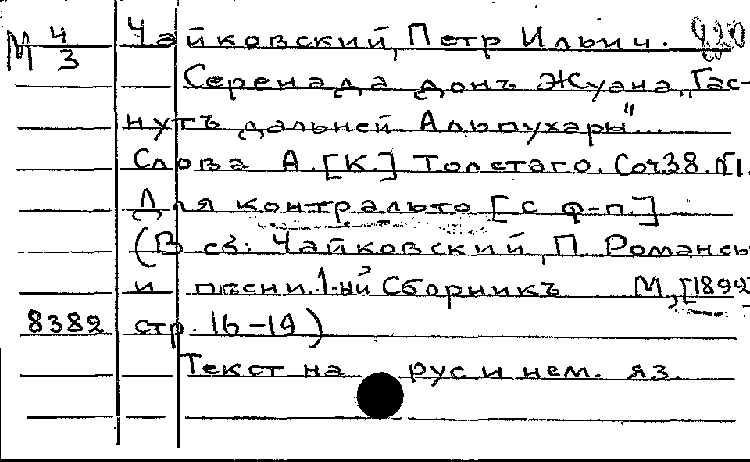 М 4/3 Чайковский, Петр Ильич. 420
Серенада донъ Жуана „Гас-
нутъ дальней Альпухары"...
Слова А.[К.] Толстаго. Соч38.№1.
Для контральто [с ф-п.]
(В сб: Чайковский, П. Романсы
и песни. 1-ый Сборникъ М,[1892
8382 стр. 16-19)
Текст на рус и нем. яз.